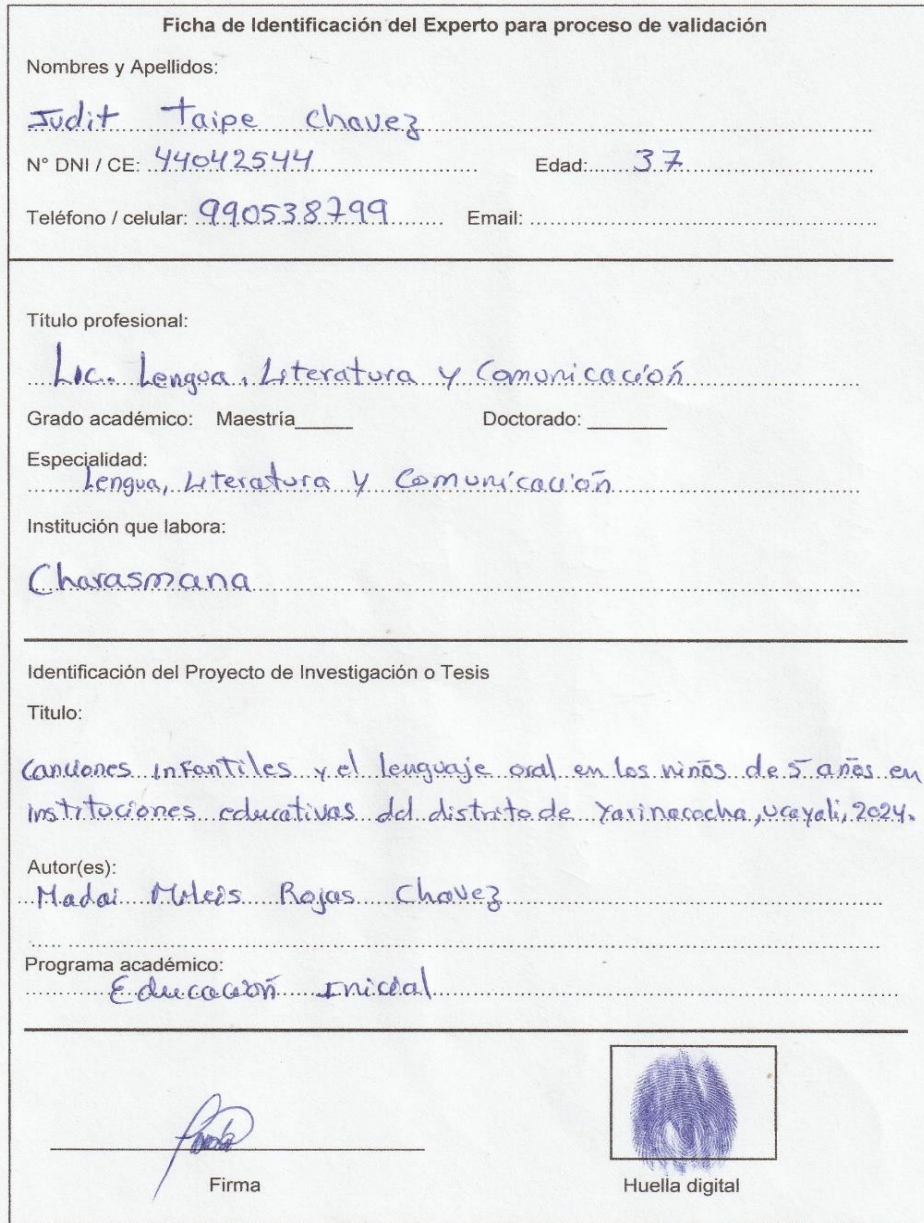 Ficha de Identificación del Experto para proceso de validación
Nombres y Apellidos:
Judit Taipe Chavez
N° DNI / CE: 44042544 Edad: 37
Teléfono / celular: 990538799 Email:
Título profesional:
Lic. Lengua, Literatura y Comunicación
Grado académico: Maestría_____ Doctorado: _______
Especialidad:
Lengua, Literatura y Comunicación
Institución que labora:
Charasmana
Identificación del Proyecto de Investigación o Tesis
Titulo:
Canciones infantiles y el lenguaje oral en los niños de 5 años en
instituciones educativas del distrito de Yarinacocha, Ucayali, 2024.
Autor(es):
Madai Rojas Chavez
Programa académico:
Educación Inicial
Firma Huella digital